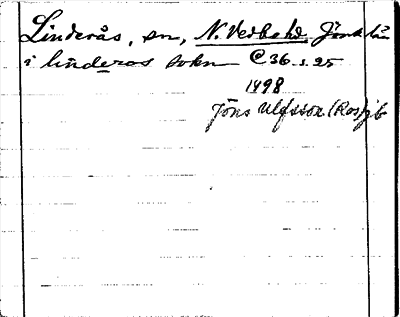 Linderås, sn, N. Vedbo hd, Jönk. län
i linderas sokn @ 36 s. 25
1498
Jöns Ulfsson (Ros) jb